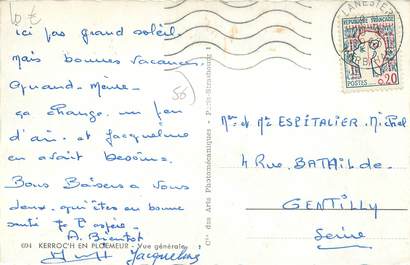 10 €
ici pas grand soleil
mais bonnes vacances
Quand-Même
ça change un peu
d'air et Jacqueline
en avait besoin.
Bons Baisers a vous
deux, qui êtes en bonne
santé je l'espère.
A. Bientot
Jacqueline
694 KERROC'H EN PLOEMEUR - Vue générale
50
Cie des Arts Photomécaniques - Paris-Strasbourg
LANESTER
MORBIHAN
REPUBLIQUE FRANCAISE
POSTES 0,20
Mr et Me ESPITALIER Michel
4 Rue BATAILDE
GENTILLY
Seine